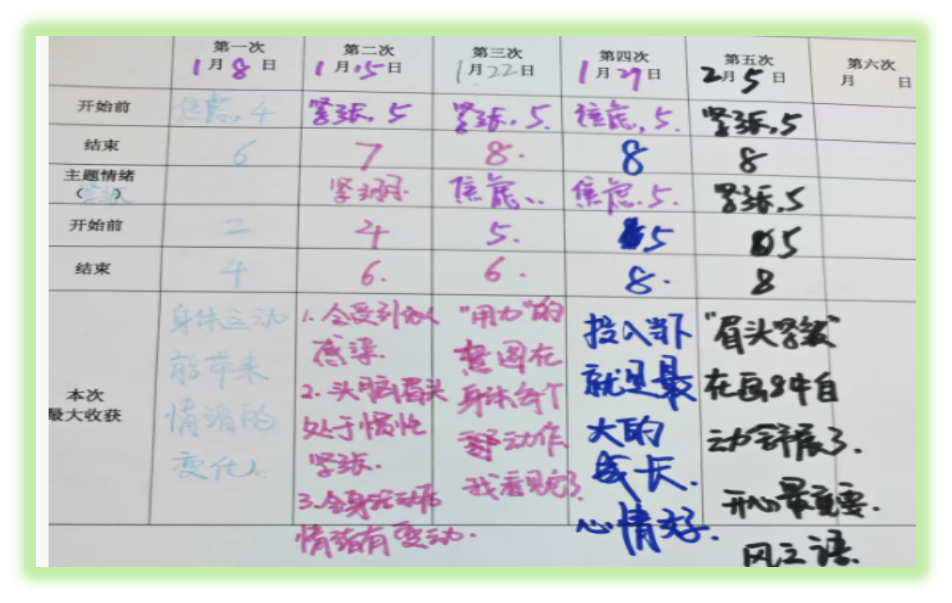 第一次 第二次 第三次 第四次 第五次 第六次
1月8日 1月15日 1月22日 1月29日 2月5日 月 日
开始前 焦虑,4 紧张,5 紧张,5. 焦虑,5. 紧张,5
结束 6 7 8. 8 8
主题情绪 紧绷. 焦虑、. 焦虑.5. 紧张.5
(紧张)
开始前 2 4 5. 5 5
结束 4 6. 6. 8. 8
本次
最大收获
身体主动
能带来
情绪的
变化
1.会受到他人
感染.
2.头脑眉头
处于惯性
紧张.
3.全身活动后
情绪有变动.
"用力"的
意图在
身体各个
动作
我看见了
投入当下
就是最
大的
成长.
心情好.
"眉头紧皱"
在画8中自
动舒展了.
开心最重要.
风之语.